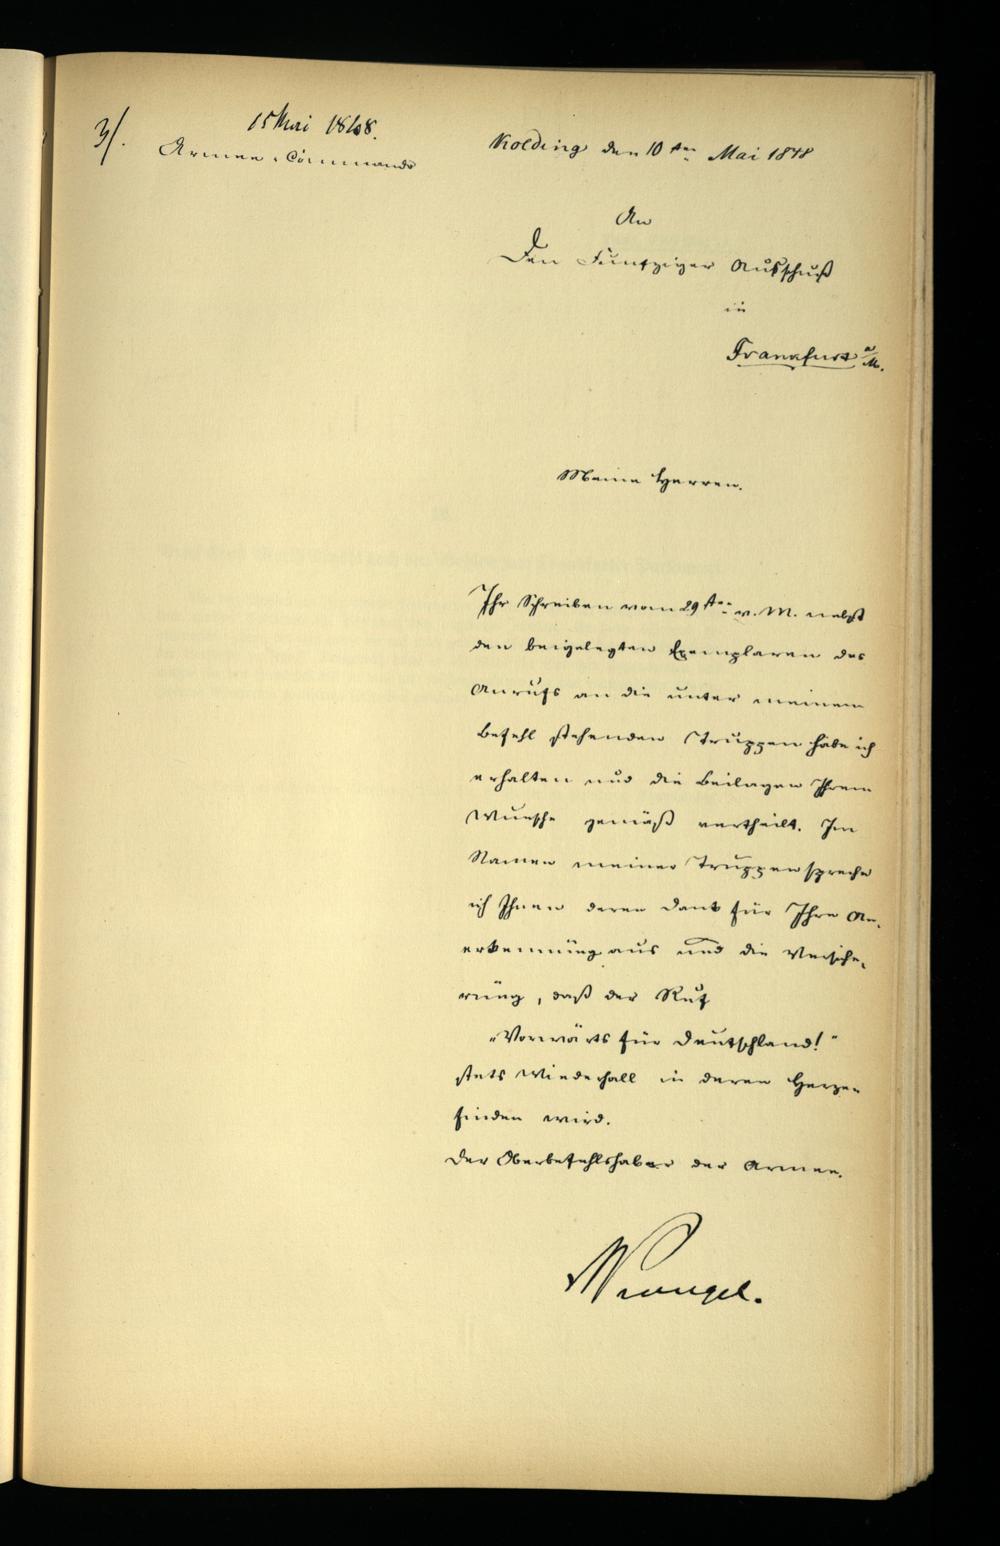 3/.
15 Mai 1848.
Armee-Commando
Kolding den 10ten Mai 1848
An
Den Funfziger Ausschuß
in
Frankfurt a/M.
Meine Herren.
Ihr Schreiben vom 29ten v. M. nebst
den beigelegten Exemplaren des
Anrufs an die unter meinem
Befehl stehenden Truppen habe ich
erhalten und die Beilagen Ihrem
Wunsche gemäß vertheilt. Im
Namen meiner Truppen spreche
ich Ihnen deren Dank für Ihre An-
erkennung aus und die Versiche-
rung, daß der Ruf
„Vorwärts für Deutschland!"
stets Wiederhall in deren Herzen
finden wird.
Der Oberbefehlshaber der Armee.
Wrangel.